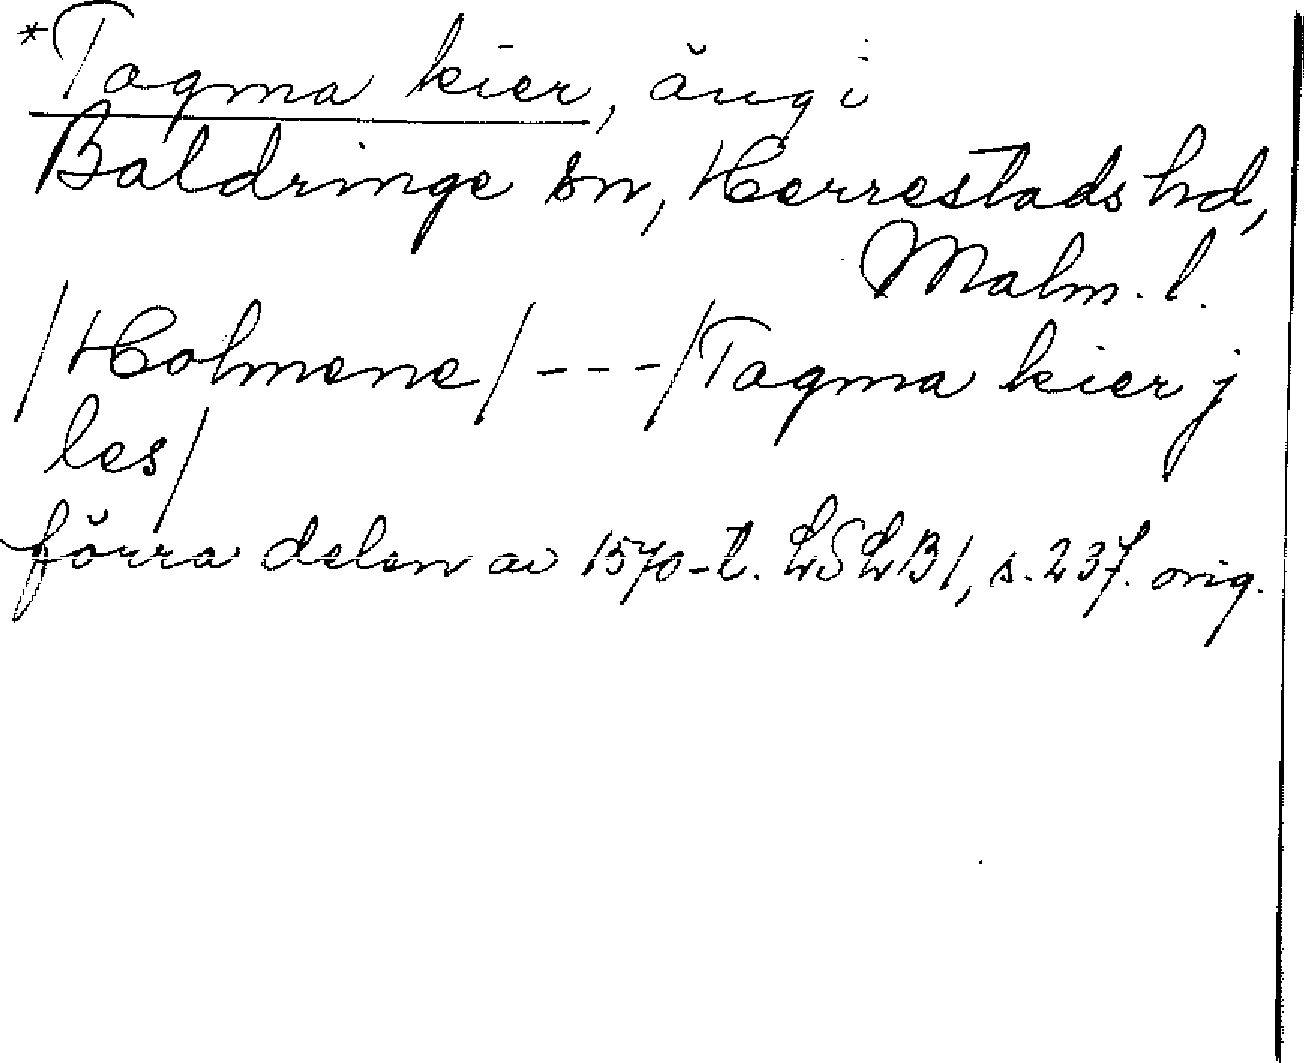 *Tagma kier, äng i
Baldringe sn, Herrestads hd,
Malm. l.
/Holmene/ --- /Tagma kier j
les/
förra delen av 1570-t. LSLB1, s. 237. orig.